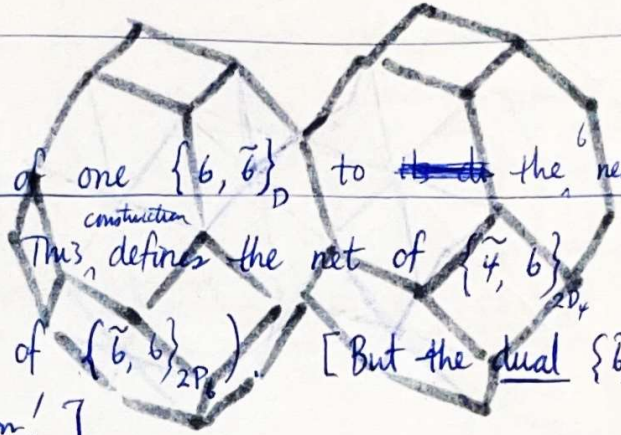 of one {6, 6̃}_D to the ^6 ne
construction
This ^ defines the net of {4̃, 6}_2D₄
of {6̃, 6}_2P₆). [But the dual {6̃
m' ]